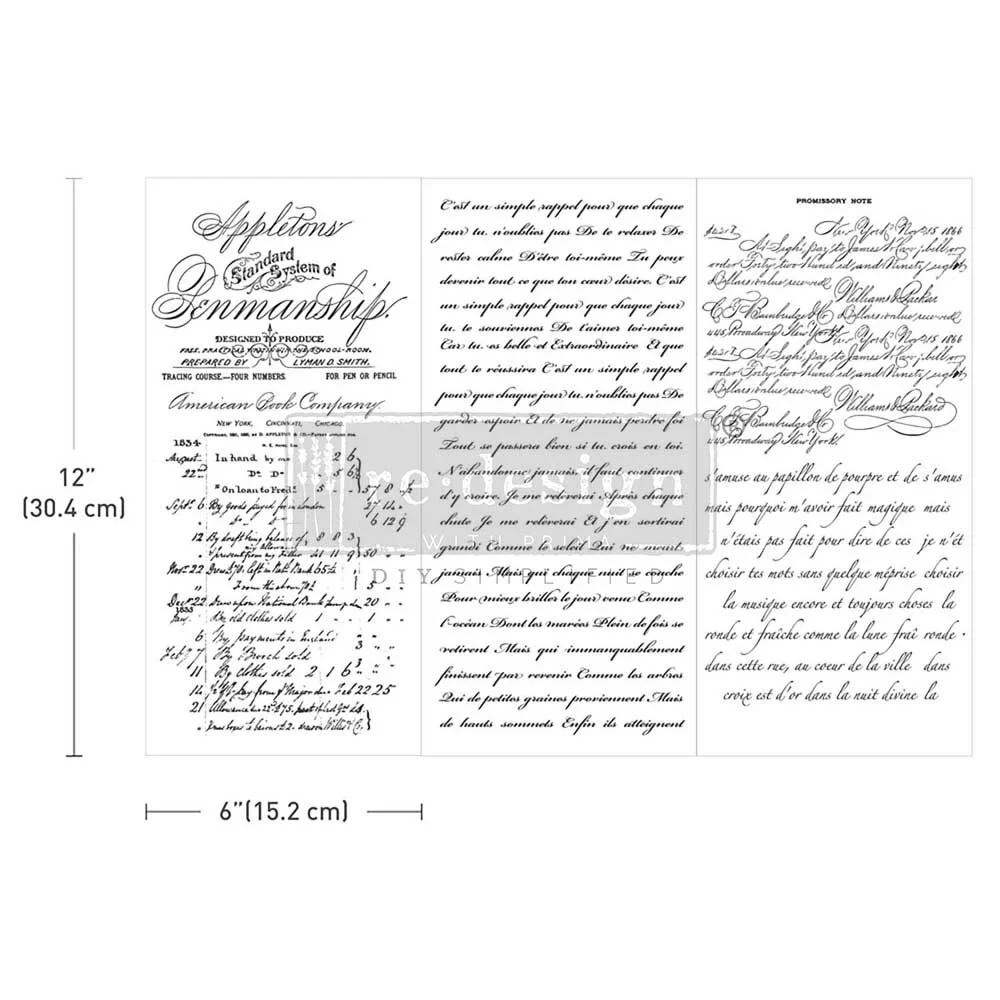 12"
(30.4 cm)
6"(15.2 cm)
Appletons'
Standard
System of
Penmanship.
DESIGNED TO PRODUCE
PREPARED BY LYMAN D. SMITH.
TRACING COURSE—FOUR NUMBERS. FOR PEN OR PENCIL
American Book Company.
NEW YORK, CINCINNATI, CHICAGO.
1834
August In hand by me 2 6
22nd Do Do 5 6
" On loan to Fred 5 - 57 8 -
Sept. 6 By goods payed for in London 27 14 -
6 12 9
12 By draft being balance of 8 8 3
my allowance
" present from my Father 41 11 9 50 - -
Nov. 22
- 5 - -
Decr 22 Drawn upon National Bank 20 - -
1835
Jany. By old clothes sold 1 - 1 - -
6 By payments in England 3
Feb 7 By Broach sold
11 By clothes sold 2 1 6 3
14 Feb 22 25
21 Allowance
C'est un simple rappel pour que chaque
jour tu n'oublies pas De te relaxer De
rester calme D'être toi-même Tu peux
devenir tout ce que ton cœur désire. C'est
un simple rappel pour que chaque jour
tu te souviennes De t'aimer toi-même
Car tu es belle et Extraordinaire Et que
tout te réussira C'est un simple rappel
pour que chaque jour tu n'oublies pas De
garder espoir Et de ne jamais perdre foi
Tout se passera bien si tu crois en toi.
N'abandonne jamais, il faut continuer
d'y croire. Je me relèverai Après chaque
chute Je me relèverai Et j'en sortirai
grandi Comme le soleil Qui ne meurt
jamais Mais qui chaque nuit se couche
Pour mieux briller le jour venu Comme
l'océan Dont les marées Plein de fois se
retirent Mais qui immanquablement
finissent par revenir Comme les arbres
Qui de petites graines proviennent Mais
de hauts sommets Enfin ils atteignent
PROMISSORY NOTE
New York Nov 15 1866
At Sight, pay to James W Carr, bill, or
order Forty two Hundred, and Ninety eight
Dollars value received
Williams & Packard
C. F. Bainbridge & Co Dollars value received
445, Broadway New York. New York Nov 15 1866
At Sight, pay to James W Carr, bill, or
order Forty two Hundred, and Ninety eight
Dollars value received
Williams & Packard
C. F. Bainbridge & Co
445, Broadway New York.
s'amuse au papillon de pourpre et de s'amus
mais pourquoi m'avoir fait magique mais
n'étais pas fait pour dire de ces je n'ét
choisir tes mots sans quelque méprise choisir
la musique encore et toujours choses la
ronde et fraîche comme la lune fraî ronde
dans cette rue, au coeur de la ville dans
croix est d'or dans la nuit divine la
re·design
WITH PRIMA
DIY SIMPLIFIED